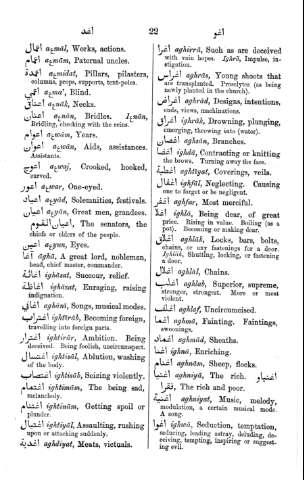 أغد 22 أغو
اعمال aɛmāl, Works, actions.
اعمام aɛmām, Paternal uncles.
اعمدة aɛmidat, Pillars, pilasters,
columns, props, supports, tent-poles.
اعمى aɛma', Blind.
اعناق aɛnāk, Necks.
اعنان aɛnān, Bridles.
Bridling, checking with the reins.
اعوام aɛwām, Years.
اعوان aɛwān, Aids, assistances.
Assistants.
اعوج aɛwaj, Crooked, hooked,
curved.
اعور aɛwar, One-eyed.
اعياد aɛyād, Solemnities, festivals.
اعيان aɛyān, Great men, grandees.
The senators, the
chiefs or elders of the people.
اعين aɛyun, Eyes.
اغا āghā, A great lord, nobleman,
head, chief master, commander.
اغاثة ighāsat, Succour, relief.
اغاظة ighāzat, Enraging, raising
indignation.
اغانى aghāni, Songs, musical modes.
اغتراب ightirāb, Becoming foreign,
travelling into foreign parts.
اغترار ightirār, Ambition. Being
deceived. Being foolish, uncircumspect.
اغتسال ightisāl, Ablution, washing
of the body.
اغتصاب ightisāb, Seizing violently.
اغتمام ightimām, The being sad,
melancholy.
اغتنام ightinām, Getting spoil or
plunder.
اغتيال ightiyāl, Assaulting, rushing
upon or attacking suddenly.
اغدية aghdiyat, Meats, victuals.
اغرا aghirrā, Such as are deceived
with vain hopes. Ighrā, Impulse, instigation.
اغراس aghrās, Young shoots that
are transplanted. Proselytes (as being
newly planted in the church).
اغراض aghrād, Designs, intentions,
ends, views, machinations.
اغراق ighrāk, Drowning, plunging,
emerging, throwing into (water).
اغصان aghsān, Branches.
اغضا ighdā, Contracting or knitting
the brows. Turning away the face.
اغطية aghtiyat, Coverings, veils.
اغفال ighfāl, Neglecting. Causing
one to forget or be negligent.
اغفر aghfar, Most merciful.
اغلا ighlā, Being dear, of great
price. Rising in value. Boiling (as a
pot). Becoming or making dear.
اغلاق aghlāk, Locks, bars, bolts,
chains, or any fastenings for a door.
Ighlāk, Shutting, locking, or fastening
a door.
اغلال aghlāl, Chains.
اغلب aghlab, Superior, supreme,
stronger, strongest. More or most
violent.
اغلف aghlaf, Uncircumcised.
اغما aghmā, Fainting. Faintings,
swoonings.
اغماد aghmād, Sheaths.
اغنا ighnā, Enriching.
اغنام aghnām, Sheep, flocks.
اغنيا aghniyā, The rich.
The rich and poor.
اغنية aghniyat, Music, melody,
modulation, a certain musical mode.
A song.
اغوا ighwā, Seduction, temptation,
seducing, leading astray, deluding, deceiving,
tempting, inspiring or suggesting evil.